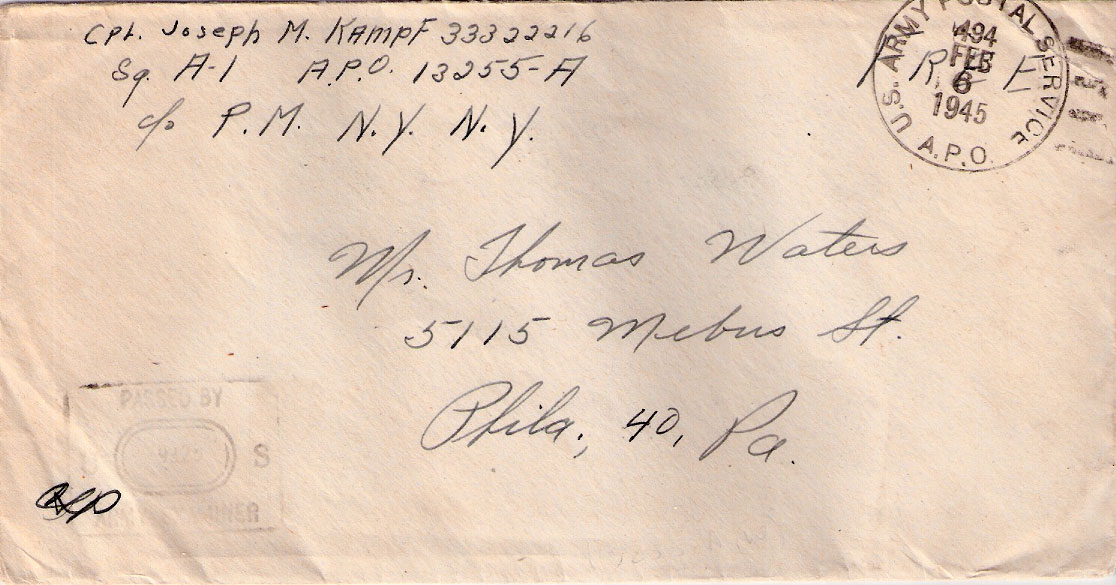 Cpl. Joseph M. Kampf 33322216
Sq. A-1 A.P.O. 13255-A
c/o P.M. N.Y. N.Y.
FREE
U.S. ARMY POSTAL SERVICE
494
FEB
6
1945
A.P.O.
Mr. Thomas Waters
5115 Mebus St.
Phila, 40, Pa.
PASSED BY
S
EXAMINER